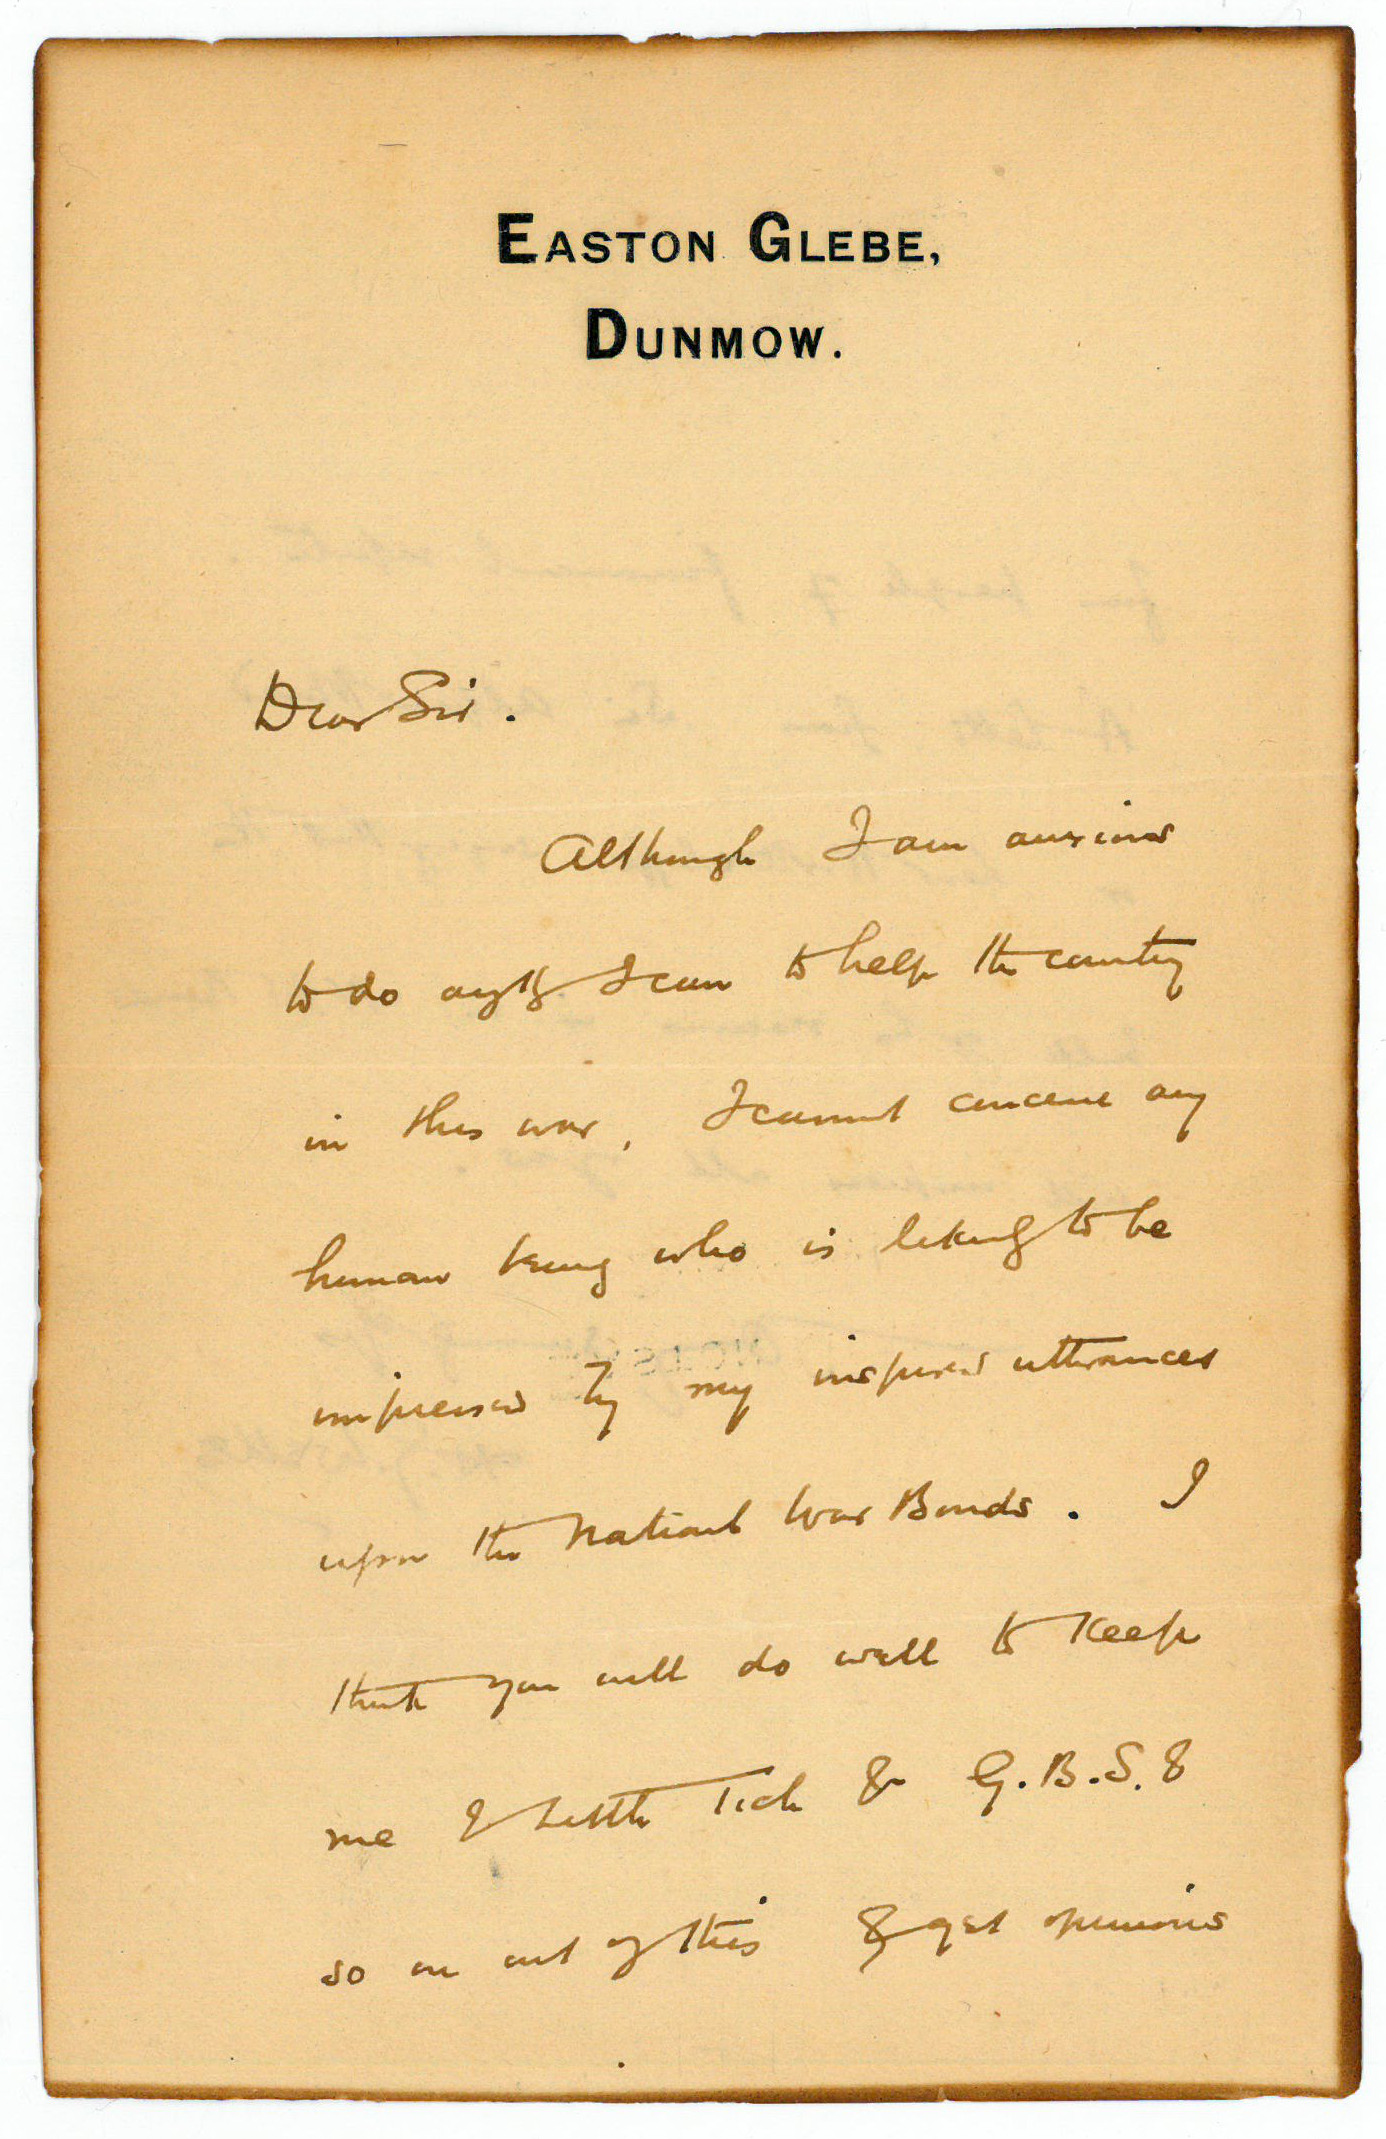 EASTON GLEBE,
DUNMOW.
Dear Sir.
Although I am anxious
to do anythg I can to help the country
in this war, I cannot conceive any
human being who is likely to be
impressed by my inspired utterances
upon the National War Bonds. I
think you will do well to keep
me & Little Tich & G.B.S. &
so on out of this & get opinions